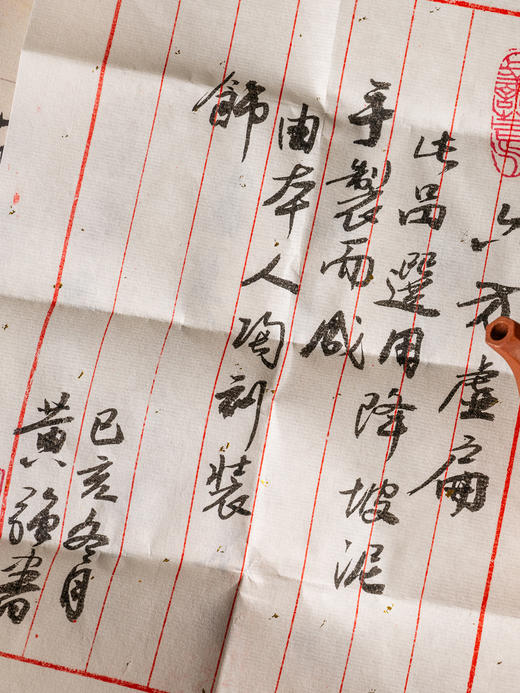 六方虚扁
此品選用降坡泥
手製而成
由本人陶刻装
飾
己亥冬月
黄强書